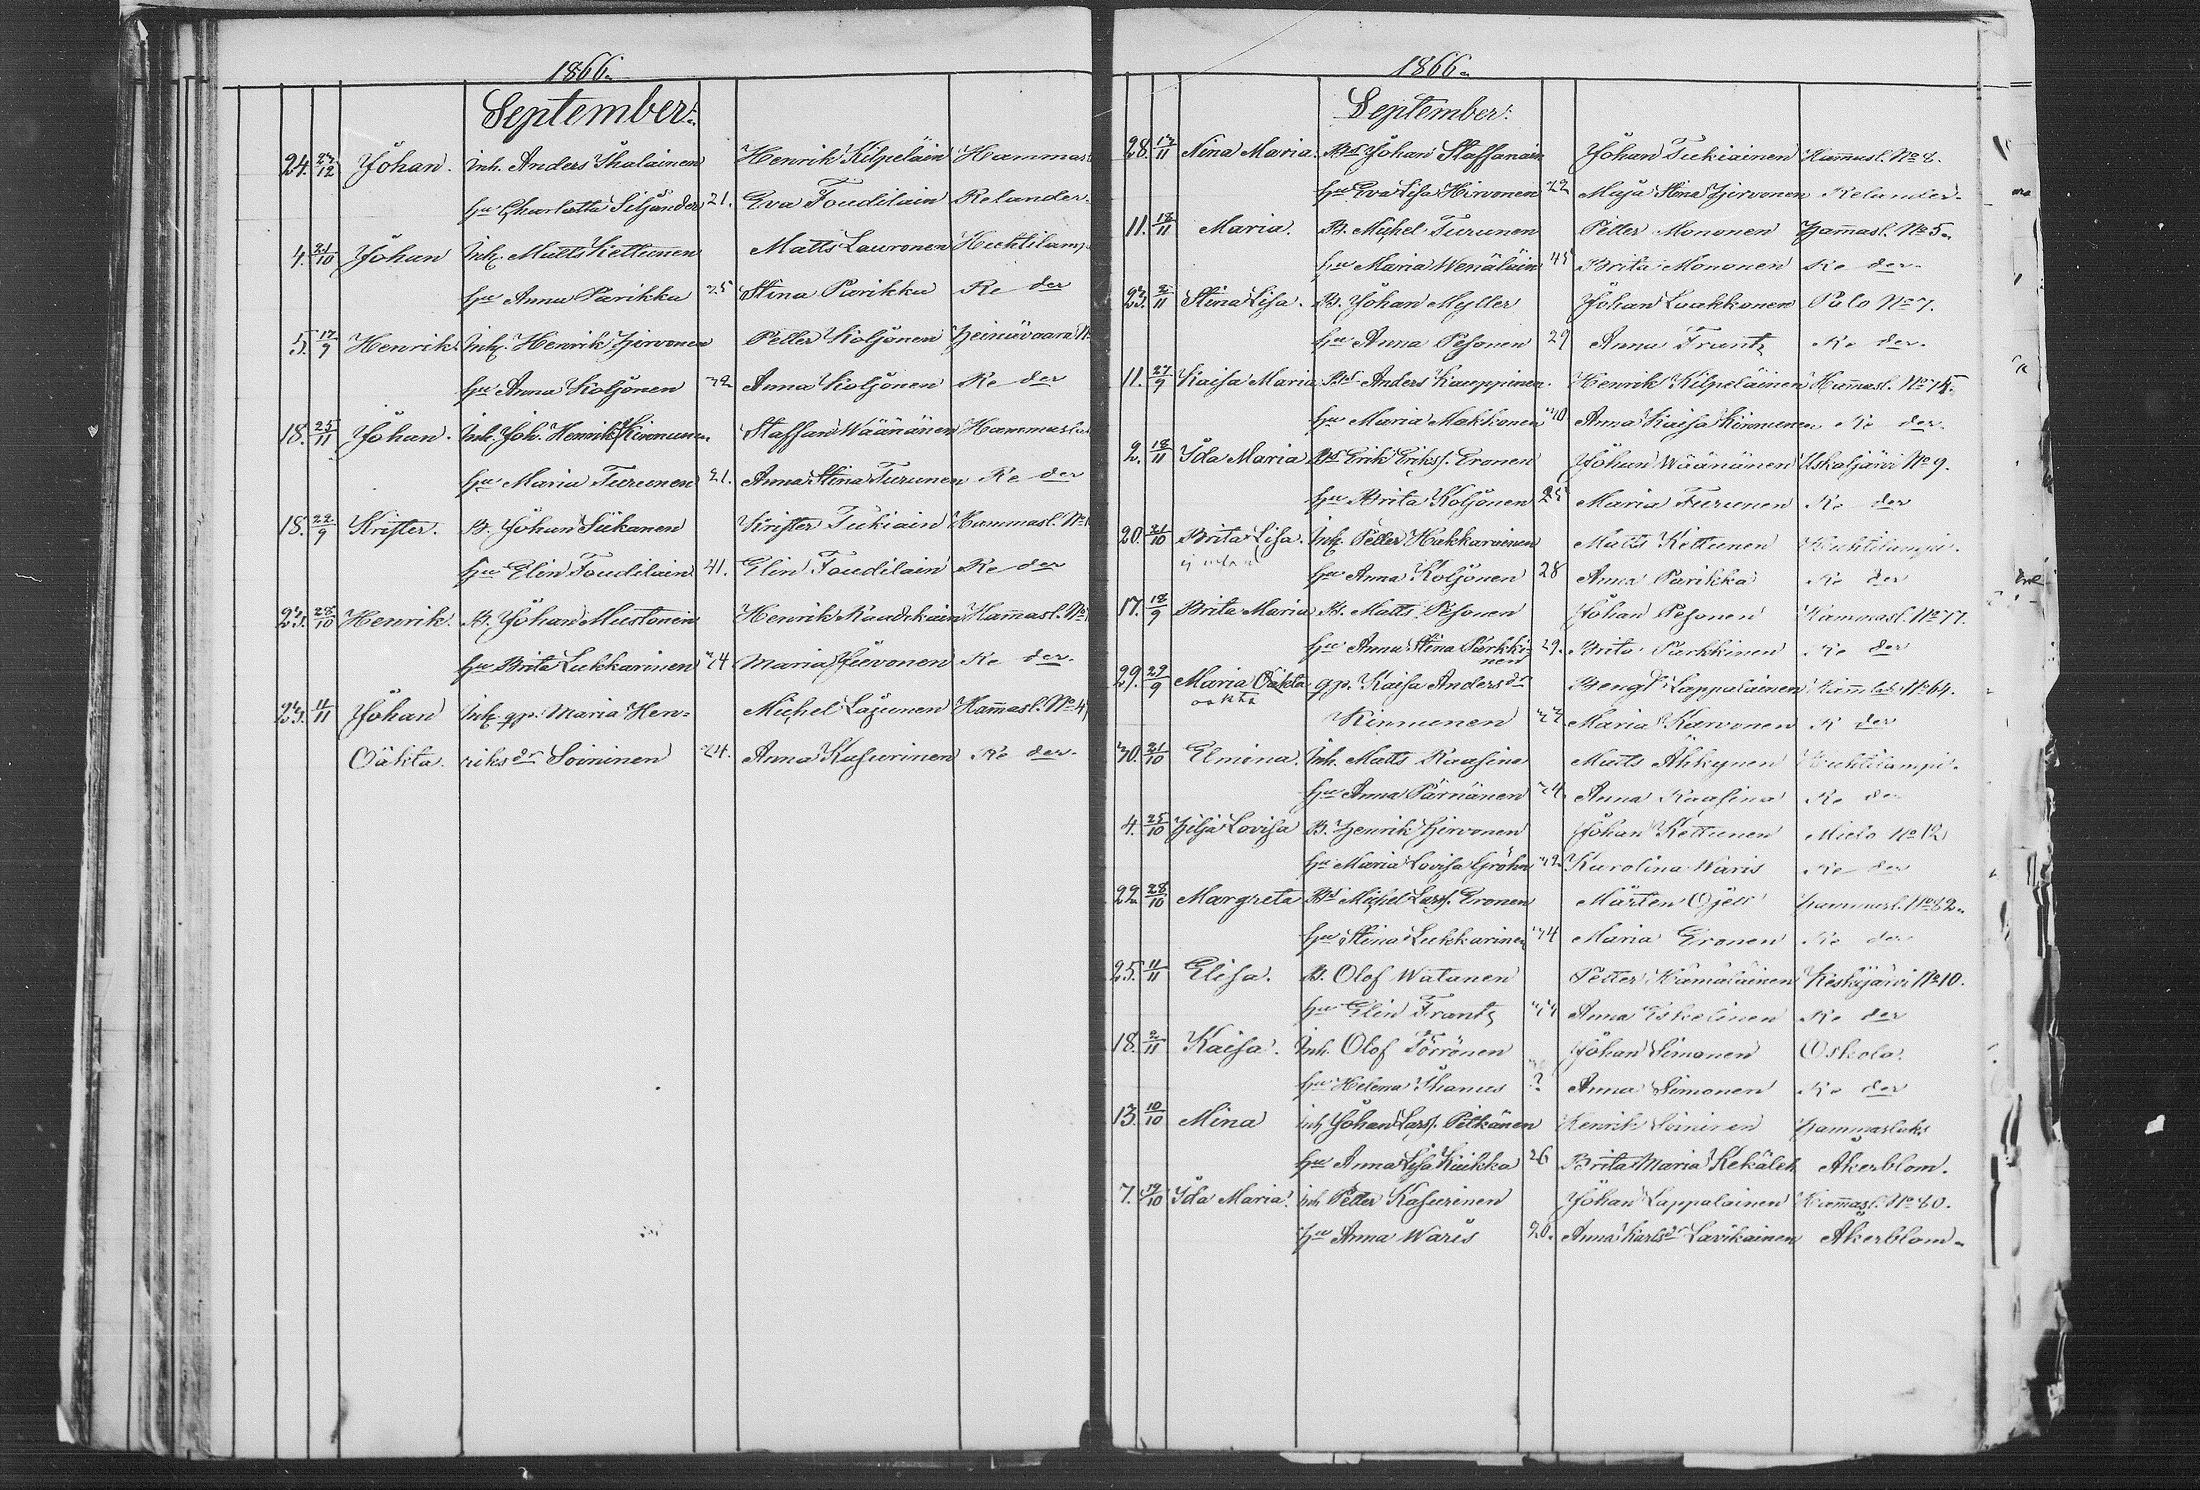 1866.
September:
24. 23/12 Johan. Inh. Anders Ihalainen Henrik Kilpeläin Hammasl
hu Charlotta Siljander 21. Eva Toudilain Relander.
4. 21/10 Johan Inh. Matts Kettunen Matts Lauronen Huhtilamp
hu Anna Parikka 25 Stina Parikka Re der
5. 17/9 Henrik. Inh. Henrik Hirvonen Petter Koljonen Heinävaara N
hu Anna Koljonen 32 Anna Koljonen Re der
18. 25/11 Johan. Inh. Joh. Henrik Kinnunen. Staffan Wäänänen Hammasla
hu Maria Turunen 21. Anna Stina Turunen Re der
18. 22/9 Krister. B. Johan Siikanen Krister Tukiain Hammasl. No
hu Elin Toudilain 41. Elin Toudilain Re der
23. 28/10 Henrik. B. Johan Mustonen Henrik Hammasl. No
hu Brita Lukkarinen 34. Maria Re der.
23. 11/11 Johan Inh. qp. Maria Hen- Michel Hammasl. No 4
Oäkta. riks dr Soininen 24. Anna Kasurinen Re der.
1866.
September:
28. 17/11 Nina Maria. Bs Johan Staffanain Johan Tukiainen Hammasl. No 8.
hu Eva Lisa Hirvonen 22 Maja Stina Hirvonen Relander.
11. 18/11 Maria. B. Michel Turunen Petter Mononen Hammasl. No 5.
hu Maria Wenäläin 45 Brita Mononen Re der.
23. 2/11 Stina Lisa. B. Johan Myller Johan Laakkonen Palo No 7.
hu Anna Pesonen 29 Anna Frantz Re der.
11. 27/9 Kaisa Maria Bs Anders Kauppinen. Henrik Kilpeläinen Hammasl. No
hu Maria Makkonen 40 Anna Kaisa Kinnunen Re der.
2. 18/11 Ida Maria Bs Erik Eriks. Eronen Johan Wäänänen Uskaljärvi No 9.
hu Brita Koljonen 25 Maria Turunen Re der
20. 21/10 Brita Lisa. Inh. Petter Hakkarainen Matts Kettunen Huhtilampi.
hu Anna Koljonen 28 Anna Parikka Re der
17. 18/9 Brita Maria B. Matts Pesonen Johan Pesonen Hammasl. No 17.
hu Anna Stina Parkki-
nen 29. Brita Parkkinen Re der
29. 29/9 Maria Oäkta qp. Kaisa Anders dr Bengt Lappalainen No 64.
oäkta Kinnunen 22 Maria Karvonen R der
30. 21/10 Elmina. Inh. Matts Raasina Matts Ahkynen Huhtilampi.
hu Anna Pärnänen 24. Anna Raasina Re der
4. 25/10 Hilja Lovisa B. Henrik Hirvonen Johan Kettunen Mulo No 12
hu Maria Lovisa Gröhn 32. Karolina Waris Re der
22. 28/10 Margreta Bs Michel Lars. Eronen Mårten Ojell Hammasl. No 82.
hu Stina Lukkarinen 34 Maria Eronen Re der
25. 11/11 Elisa. B. Olof Watanen Petter Hämäläinen Keskijärvi No 10.
hu Elin Frantz Anna Eskelinen Re der
18. 2/11 Kaisa. Inh. Olof Törrönen Johan Simonen Oskola.
hu Helena Ihanus ? Anna Simonen Re der
13. 10/10 Mina inh Johan Lars. Pitkänen Henrik Soininen Hammaslaks
hu Anna Lisa Kuikka 26 Brita Maria Kekäleh Åkerblom.
7. 19/10 Ida Maria. inh Petter Kasurinen Johan Lappalainen Hammasl. No 80.
hu Anna Waris 20. Anna Karls dr Lavikainen Åkerblom.